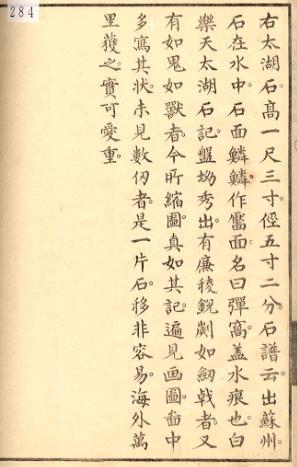 284
右太湖石高一尺三寸徑五寸二分。石譜云。出蘇州。
石在水中。石面鱗鱗作靨面。名曰彈窩。盖水痕也。白
樂天太湖石記。盤坳秀出。有廉稜銳劌如劒戟者。又
有如鬼如獸者。今所縮圖。真如其記。遍見画圖。畫中
多寫其状。未見數仞者。是一片石。移非容易。海外萬
里護之。實可愛重。